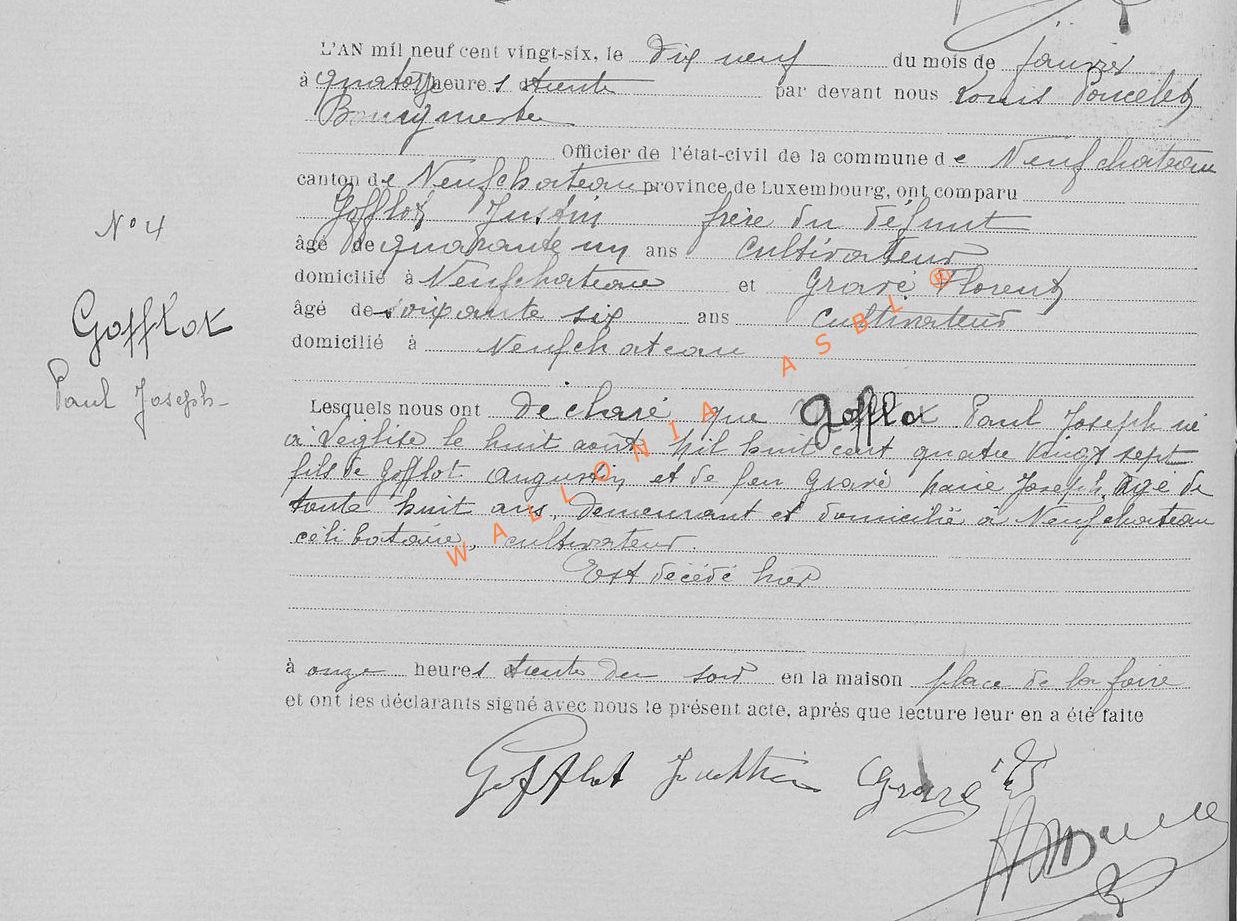 L'AN mil neuf cent vingt-six, le dix neuf du mois de janvier
à quatorze heures trente par devant nous Louis Poncelet
Bourgmestre
Officier de l'état-civil de la commune de Neufchateau
canton de Neufchateau province de Luxembourg, ont comparu
Gofflot Justin frère du défunt
N° 4
âgé de quarante un ans cultivateur
domicilié à Neufchateau et Gravé Florent
Gofflot
âgé de soixante six ans cultivateur
domicilié à Neufchateau
Paul Joseph
Lesquels nous ont déclaré que Gofflot Paul Joseph né
à Léglise le huit août mil huit cent quatre vingt sept
fils de Gofflot Augustin et de feu Gravé Marie Joseph, âgé de
trente huit ans, demeurant et domicilié à Neufchateau
célibataire, cultivateur.
Est décédé hier
à onze heures trente du soir en la maison place de la foire
et ont les déclarants signé avec nous le présent acte, après que lecture leur en a été faite
Gofflot Justin Gravé
WALLONIA ASBL ®